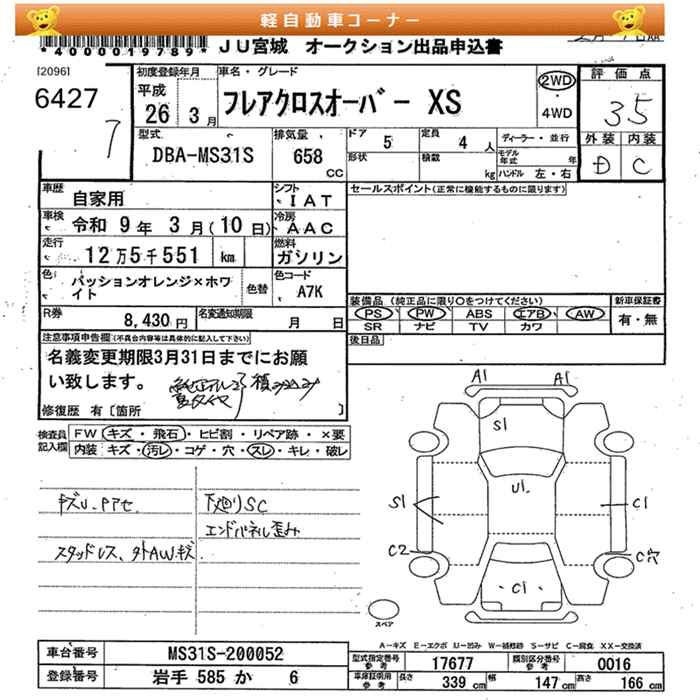 軽自動車コーナー
*4000019789*
JU宮城 オークション出品申込書
[2096]
6427
7
初度登録年月
平成
26年 3月
車名・グレード
フレアクロスオーバー XS
2WD
・
4WD
評価点
3.5
外装 内装
D C
型式
DBA-MS31S
排気量
658
CC
ドア 5
定員 4人
形状
積載 kg
ディーラー・並行
モデル年式 年
ハンドル 左・右
車歴
自家用
シフト
IAT
セールスポイント(正常に機能するものに限ります)
車検
令和 9年 3月(10日)
冷房
AAC
走行
12万5千551 km
燃料
ガソリン
色
パッションオレンジ×ホワイト
色替
色コード
A7K
装備品(純正品に限り○をつけてください)
新車保証書
PS PW ABS エアB AW
有・無
SR ナビ TV カワ
R券
8,430円
名変通知期限
月 日
後日品
注意事項申告欄(不具合内容等は具体的に記入して下さい)
名義変更期限3月31日までにお願
い致します。
積み込み
修復歴 有[箇所 ]
検査員
記入欄
FW キズ・飛石・ヒビ割・リペア跡・×要
内装 キズ・汚レ・コゲ・穴・スレ・キレ・破レ
キズU、Pアセ
下廻りSC
エンドパネル歪み
スタッドレス、外AWキズ
A1 A1
S1
U1.
S1 C1
C2 C穴
C1
スペア
A-キズ E-エクボ U-凹み W-補修跡 S-サビ C-腐食 XX-交換済
車台番号
MS31S-200052
登録番号
岩手 585 か 6
型式指定番号
参考
17677
類別区分番号
参考
0016
車庫証明用
参考
長さ 339cm
幅 147cm
高さ 166cm